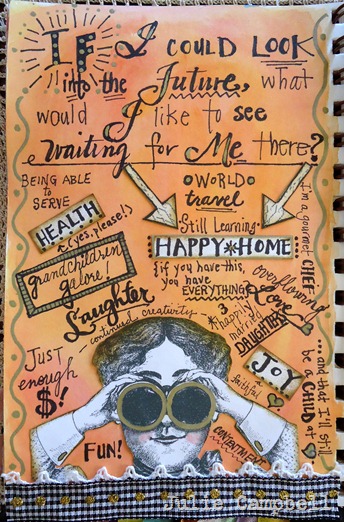 IF I COULD LOOK
into the Future, what
would I like to see
waiting for Me there?
BEING ABLE
to SERVE
HEALTH
(yes, please!)
grandchildren
galore!
Laughter
continued creativity
WORLD
travel
Still Learning
HAPPY HOME
{if you have this,
you have
EVERYTHING}
I'm a gourmet CHEF
overflowing
Love
3
happily
married
DAUGHTERS
JOY
a
faithful
...and that I'll still
be a CHILD at
JUST
enough
$!
FUN!
CONTENTMENT
Julie Campbell